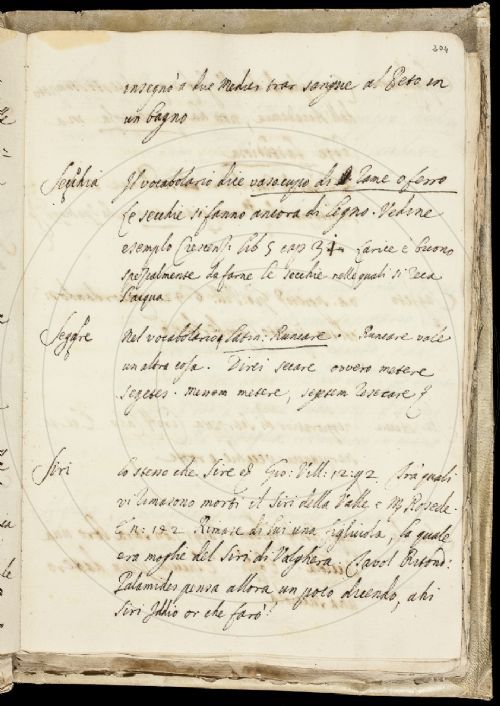 304
insegnò a due Medici trar sangue al Peto in
un bagno
Secchia Il vocabolario dice vaso cupo di Rame o ferro
Le secchie si fanno ancora di legno. Vedine
esemplo Crescenti: lib 5 cap 3 Larice è buono
spezialmente da farne le secchie nelle quali si reca
l'acqua.
Segare Nel vocabolario, latin: Runcare. Runcare vale
un altra cosa. Direi secare ovvero metere
segetes. menom metere, septem resecare
Siri lo stesso che Sire es Gio: Vill: 12: 92 fra quali
vi rimasono morti il Siri della Valle e
Rimase di lui una figliuola, la quale
era moglie del Siri di Valghera. Tavol Ritond:
Palamides pensa allora un poco dicendo, ahi
Siri Iddio or che farò?